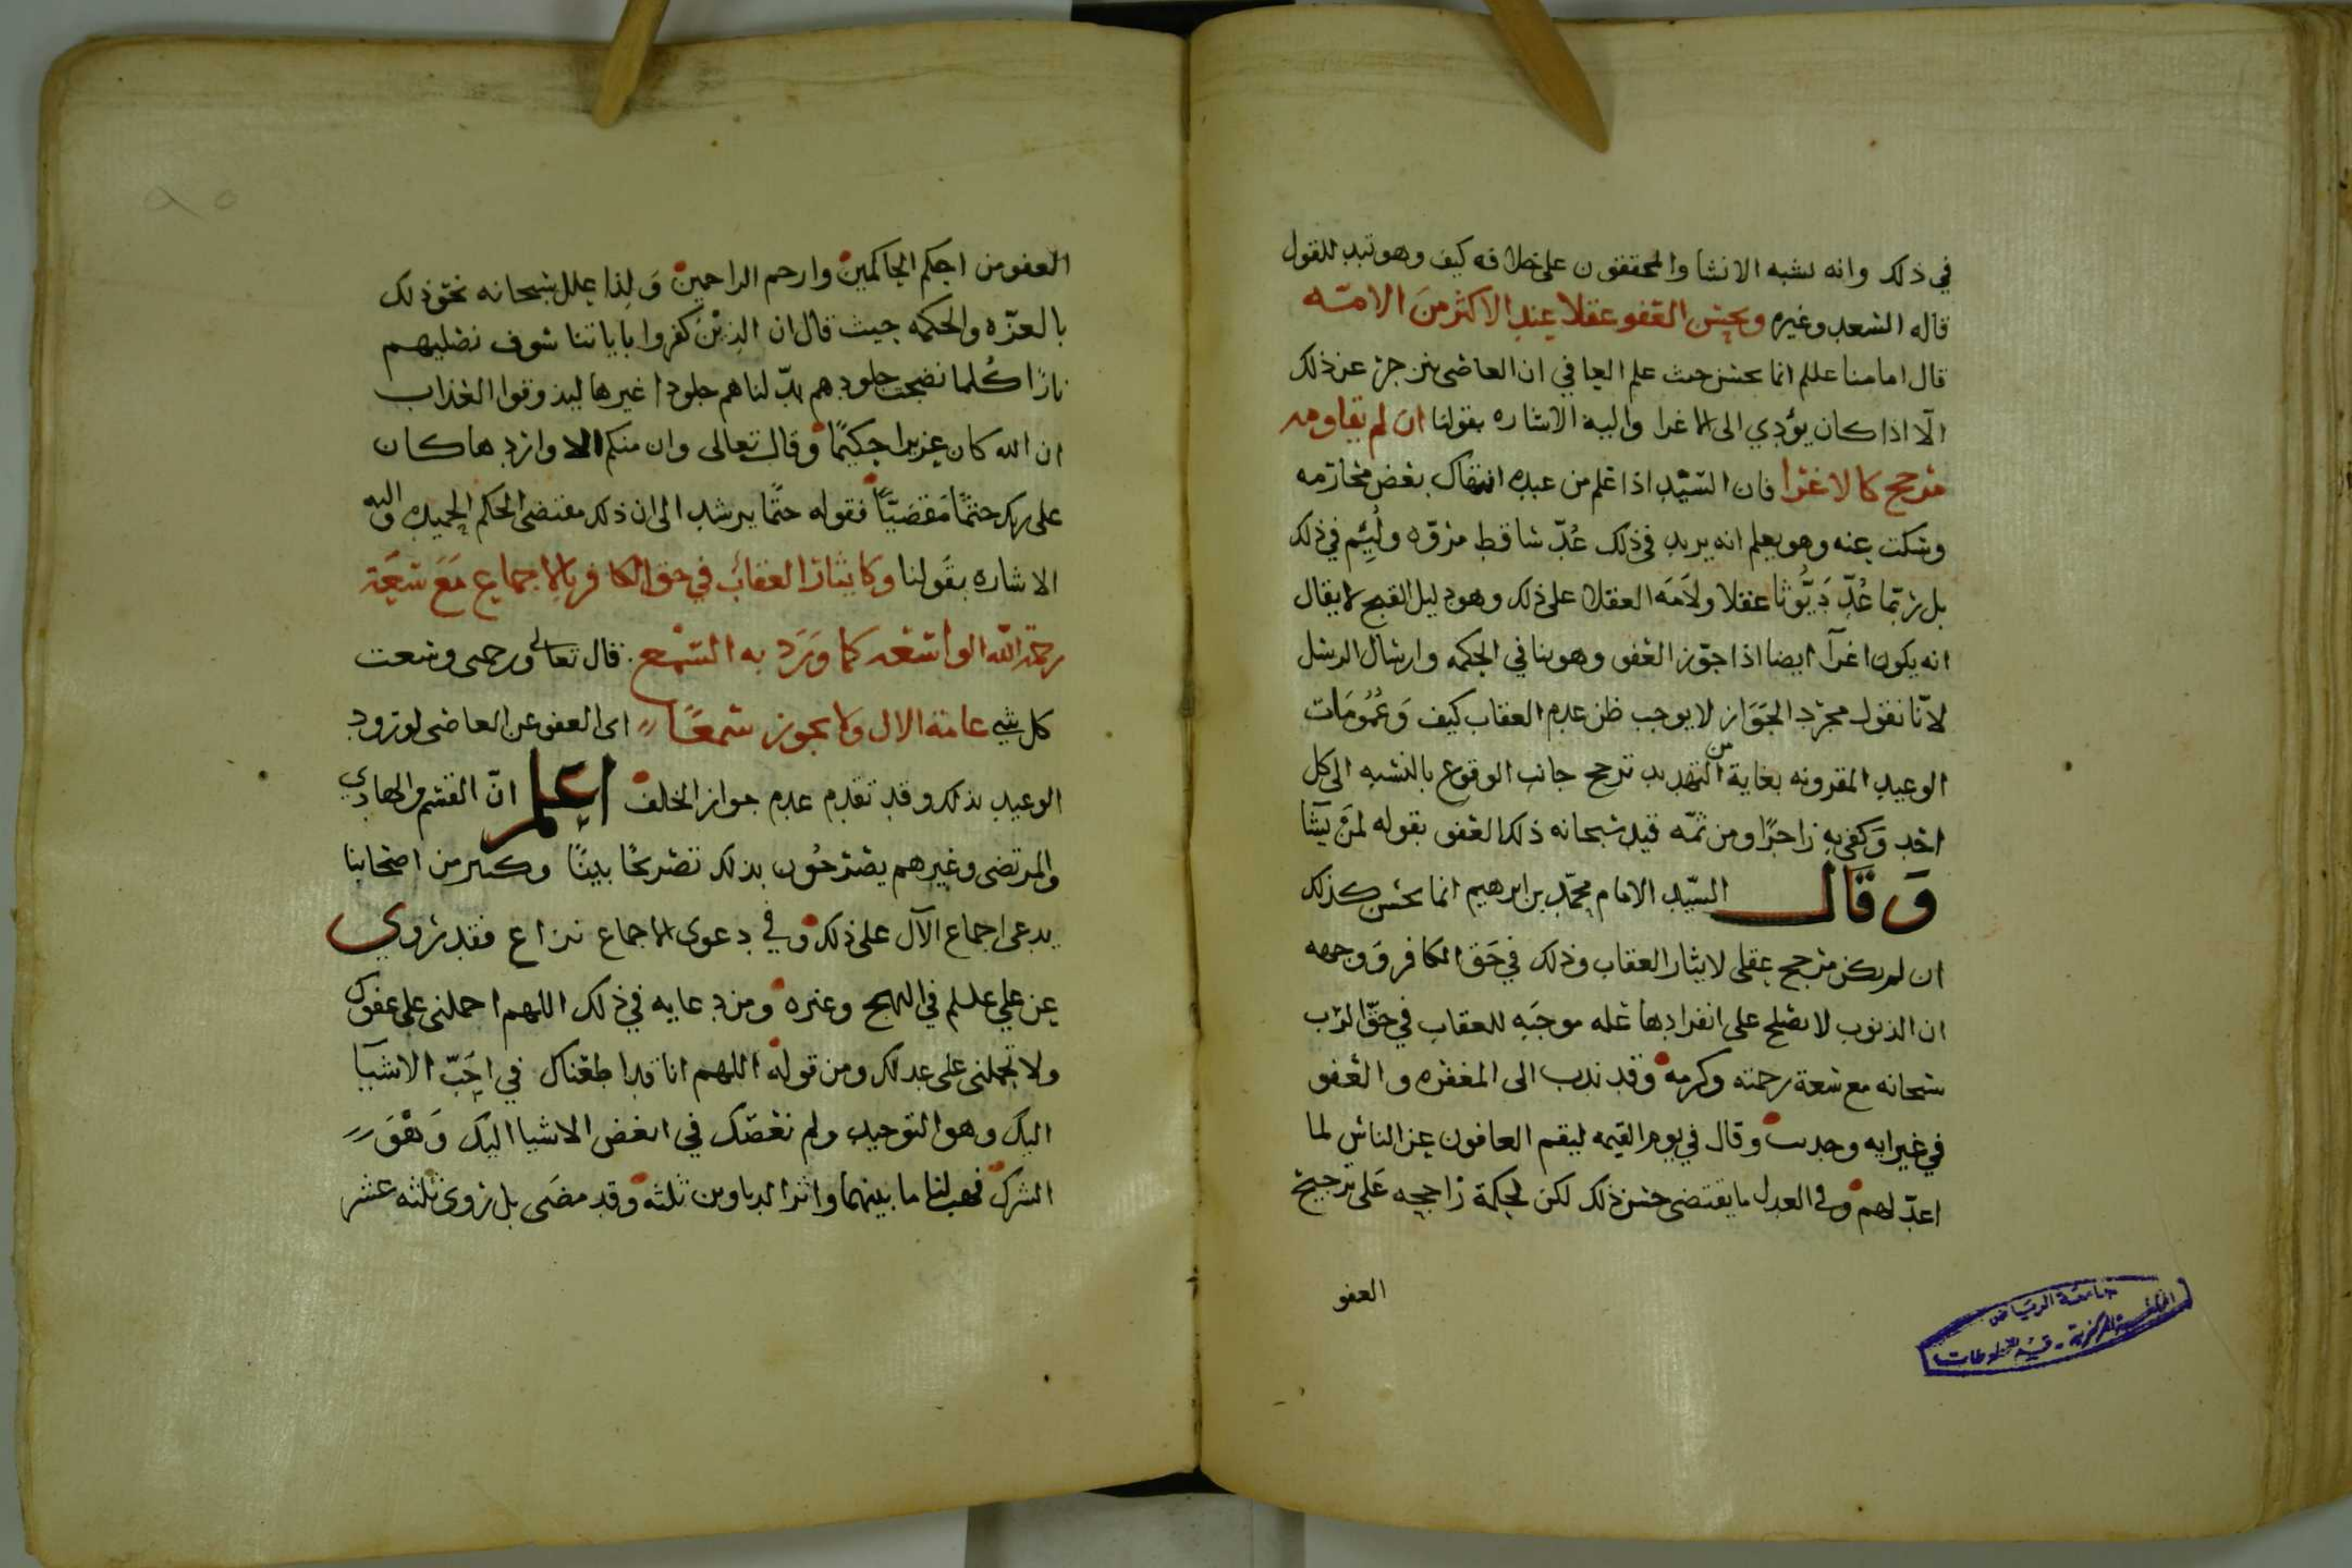 في ذلك وانه يشبه الانشا والمحققون على خلافه كيف وهو تبديل للقول
قاله السعد وغيره ويحسن العفو عقلا عند الاكثر من الامه
قال امامنا عللم انما يحسن حيث علم العافي ان العاصى ينزجر عن ذلك
الا اذا كان يؤدي الى الاغرا واليه الاشاره بقولنا ان لم يقاومه
مرجح كالاغرا فان السيّد اذا علم من عبده انتهاك بعض محارمه
وسكت عنه وهو يعلم انه يريد في ذلك عُدّ ساقط مروّه ولُئِم في ذلك
بل ربّما عُدّ دَيّوثا عقلا ولَامَه العقلا على ذلك وهو دليل القبح لا يقال
انه يكون اغرآ ايضا اذا جوّز العفو وهو ينافي الحكمه وارسال الرسل
لانّا نقول مجرّد الجَوَاز لا يوجب ظن عدم العقاب كيف وَعُمُومَات
الوعيد المقرونه بغاية من التهديد ترجح جانب الوقوع بالنسبه الى كل
احد وَكفى به زاجرًا ومن ثمّه قيد سبحانه ذلك العفو بقوله لمَن يشآ
وَقال السيّد الامام محمّد بن ابرهيم انما يحسن كذلك
ان لم يكن مرجح عقلي لايثار العقاب وذلك في حَق الكافر وَوجهه
ان الذنوب لا تصلح على انفرادها عله موجَبه للعقاب في حقّ الرب
سبحانه مع سعة رحمته وكرمه وقد ندب الى المغفره والعفو
في غير ايه وحديث وقال في يوم القيمه ليقم العافون عن الناس لما
اعدّ لهم وفي العدل ما يقتضى حسن ذلك لكن لحكمة راجحه عَلى ترجيح
العفو
جامعة الرياض
المكتبة المركزية - قسم المخطوطات
٩٥
العفو من احكم الحاكمين وارحم الراحمين وَلِذا علل سبحانه نحو ذلك
بالعزّه والحكمه حيث قال ان الذِيْنَ كفروا باياتنا سوف نصليهم
نارًا كُلما نضجت جلودهم بدّلناهم جلودا غيرها ليذوقوا العذاب
ان الله كان عزيزا حكيمًا وقال تعالى وان منكم الا واردها كان
على ربك حتمًا مَقضيّا فقوله حتمًا يرشد الى ان ذلك مقتضى الحكم الحميده واليه
الاشاره بقَولنا وكايثار العقاب في حق الكافر بالاجماع مَعَ سَعَة
رحمة الله الواسعه كما وَرَد به السّمْع قال تعالى ورحمتى وسعت
كل شيء عامة الال ولا يجوز سَمعًا اى العفو عن العاصى لورود
الوعيد بذلك وقد تقدم عدم جواز الخلف اعلم انّ القسم والهادي
والمرتضى وغيرهم يصَرحُون بذلك تصريحًا بينًا وكثير من اصحابنا
يدعى اجماع الآل على ذلك وفي دعوى الاجماع نزاع فقد رُوي
عن علي عللم في النهج وغيره ومن دعايه في ذلك اللهم احملني على عفوك
ولا تحملني على عدلك ومن قوله اللهم انا قد اطعناك في احَبّ الاشيآ
اليك وهو التوحيد ولم نعصك في ابغض الاشيا اليك وَهُوَ
الشرك فهب لنا ما بينهما واثر الدواوين ثلثه وقد مضَى بل روى ثلثه عشر